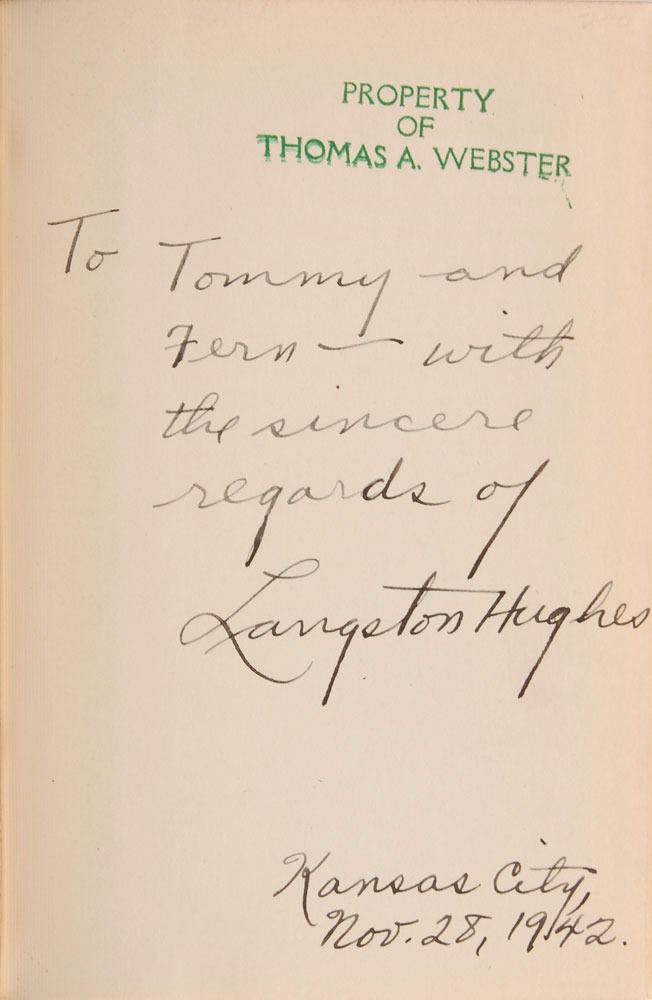 PROPERTY
OF
THOMAS A. WEBSTER
To Tommy and
Fern — with
the sincere
regards of
Langston Hughes
Kansas City,
Nov. 28, 1942.